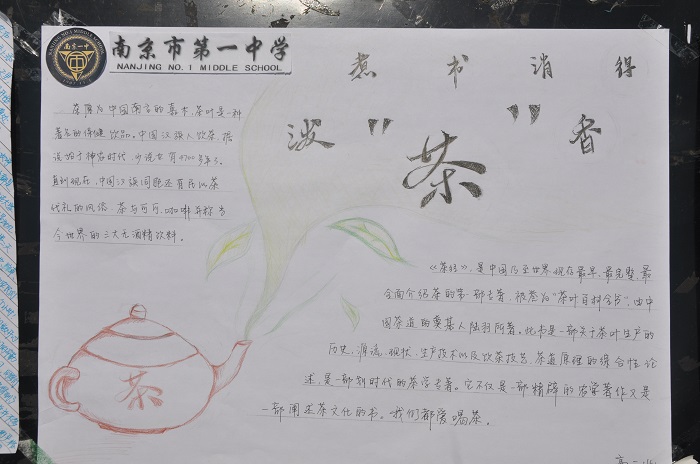 南京市第一中学
NANJING NO.1 MIDDLE SCHOOL
煮书消得
泼"茶"香
茶原为中国南方的嘉木,茶叶是一种
著名的保健饮品。中国汉族人饮茶,据
说始于神农时代,少说也有4700多年了。
直到现在,中国汉族同胞还有民以茶
代礼的风俗。茶与可可、咖啡并称当
今世界的三大无酒精饮料。
《茶经》,是中国乃至世界现存最早、最完整、最
全面介绍茶的第一部专著,被誉为"茶叶百科全书",由中
国茶道的奠基人陆羽所著。此书是一部关于茶叶生产的
历史、源流、现状、生产技术以及饮茶技艺、茶道原理的综合性论
述,是一部划时代的茶学专著。它不仅是一部精辟的农学著作又是
一部阐述茶文化的书。我们都爱喝茶。
茶
高一